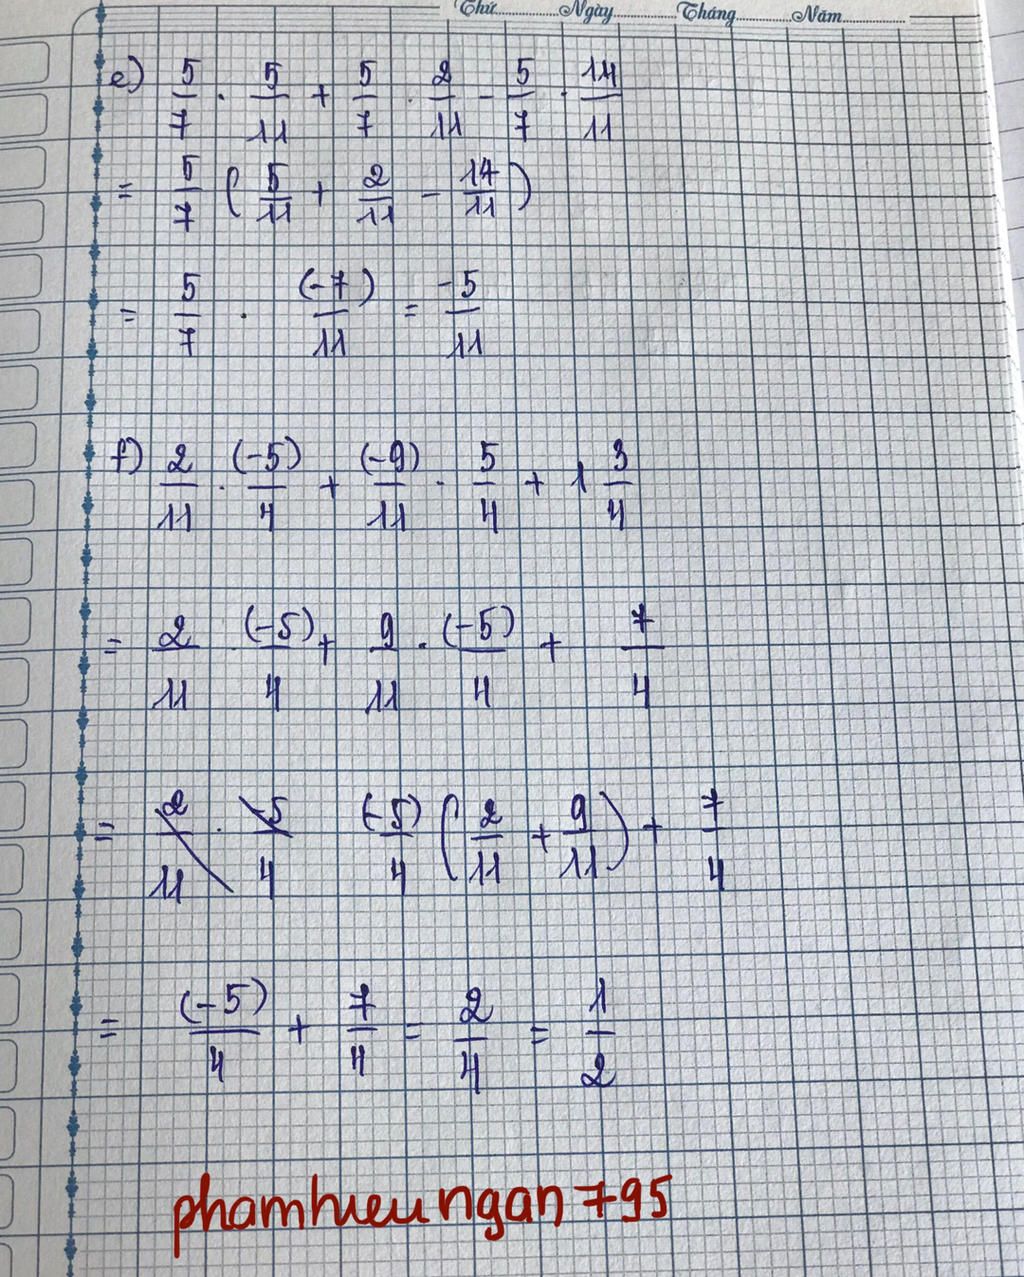 Thứ Ngày Tháng Năm
e) 5/7 . 5/11 + 5/7 . 2/11 - 5/7 . 14/11
= 5/7 (5/11 + 2/11 - 14/11)
= 5/7 . (-7)/11 = -5/11
f) 2/11 . (-5)/4 + (-9)/11 . 5/4 + 1 3/4
= 2/11 . (-5)/4 + 9/11 . (-5)/4 + 7/4
= 2/11 . -5/4 (-5)/4 (2/11 + 9/11) + 7/4
= (-5)/4 + 7/4 = 2/4 = 1/2
phamhieungan795